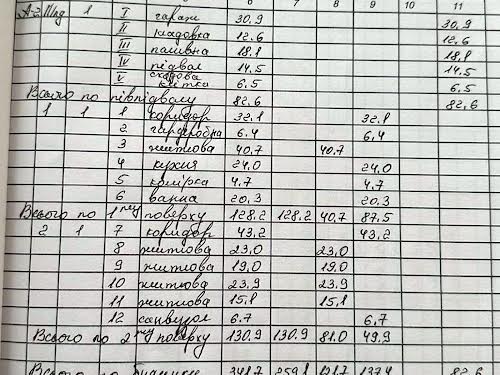 6 7 8 9 10 11
А-2 1 I гараж 30,9 30,9
II кладовка 12,6 12,6
III паливна 18,1 18,1
IV підвал 14,5 14,5
V сходова клітка 6,5 6,5
Всього по півпідвалу 82,6 82,6
1 1 1 коридор 32,1 32,1
2 гардеробна 6,4 6,4
3 житлова 40,7 40,7
4 кухня 24,0 24,0
5 комірка 4,7 4,7
6 ванна 20,3 20,3
Всього по 1му поверху 128,2 128,2 40,7 87,5
2 1 7 коридор 43,2 43,2
8 житлова 23,0 23,0
9 житлова 19,0 19,0
10 житлова 23,9 23,9
11 житлова 15,1 15,1
12 санвузол 6,7 6,7
Всього по 2му поверху 130,9 130,9 81,0 49,9
Всього по будинку 341,7 259,1 121,7 137,4 82,6